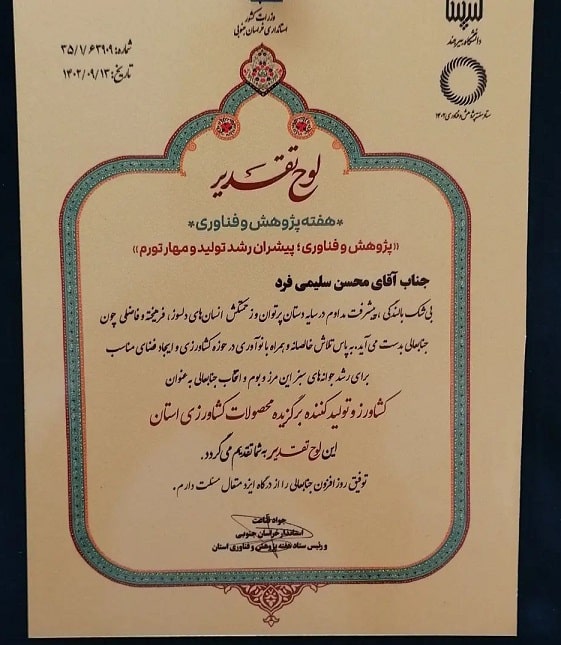 وزارت کشور
استانداری خراسان جنوبی
شماره: ۳۵/۱/۶۳۹۰۹
تاریخ: ۱۴۰۲/۰۹/۱۳
دانشگاه بیرجند
ستاد هفته پژوهش و فناوری ۱۴۰۲
لوح تقدیر
*هفته پژوهش و فناوری*
«پژوهش و فناوری؛ پیشران رشد تولید و مهار تورم»
جناب آقای محسن سلیمی فرد
بی شک بالندگی، پیشرفت مداوم در سایه دستان پرتوان و زحمتکش انسان های دلسوز، فرهیخته و فاضلی چون
جنابعالی بدست می آید، به پاس تلاش خالصانه و همراه با نوآوری در حوزه کشاورزی و ایجاد فضای مناسب
برای رشد جوانه های سبز این مرز و بوم و انتخاب جنابعالی به عنوان
کشاورز و تولید کننده برگزیده محصولات کشاورزی استان
این لوح تقدیر به شما تقدیم می گردد.
توفیق روز افزون جنابعالی را از درگاه ایزد متعال مسئلت دارم.
جواد قناعت
استاندار خراسان جنوبی
و رئیس ستاد هفته پژوهش و فناوری استان